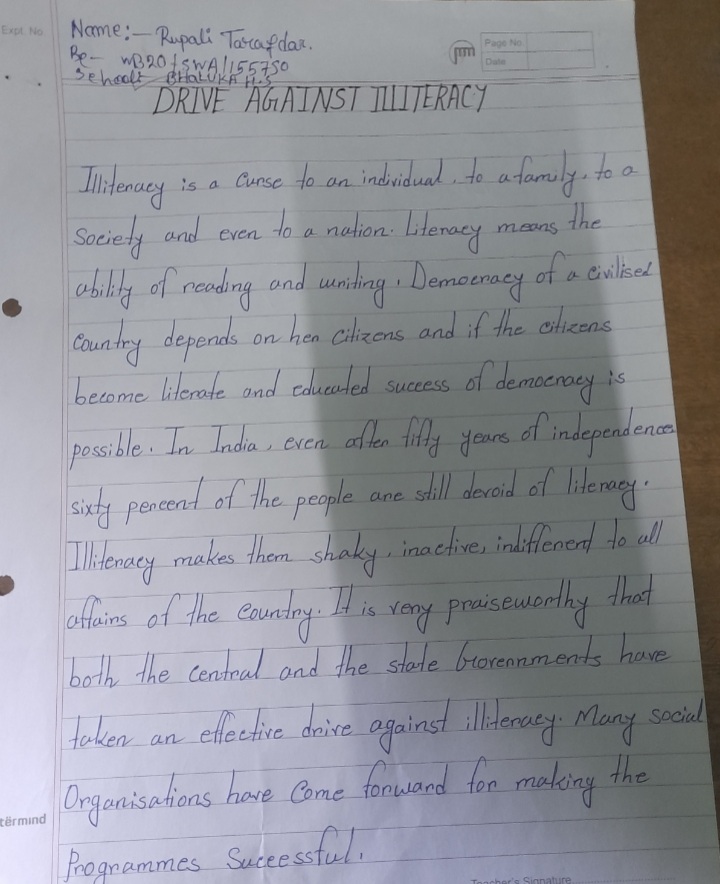 Expt. No
Name:- Rupali Tarafdar.
Page No.
Date
Re- WB20/SWA/155750
School:- BHALUKA H.S
DRIVE AGAINST ILLITERACY
Illiteracy is a curse to an individual, to a family, to a
Society and even to a nation. Literacy means the
ability of reading and writing. Democracy of a civilised
Country depends on her citizens and if the citizens
become literate and educated success of democracy is
possible. In India, even after fifty years of independence
sixty percent of the people are still devoid of literacy.
Illiteracy makes them shaky, inactive, indifferent to all
affairs of the Country. It is very praiseworthy that
both the central and the state Governments have
taken an effective drive against illiteracy. Many social
Organisations have Come forward for making the
Programmes Successful.
tërmind
Teacher's Signature